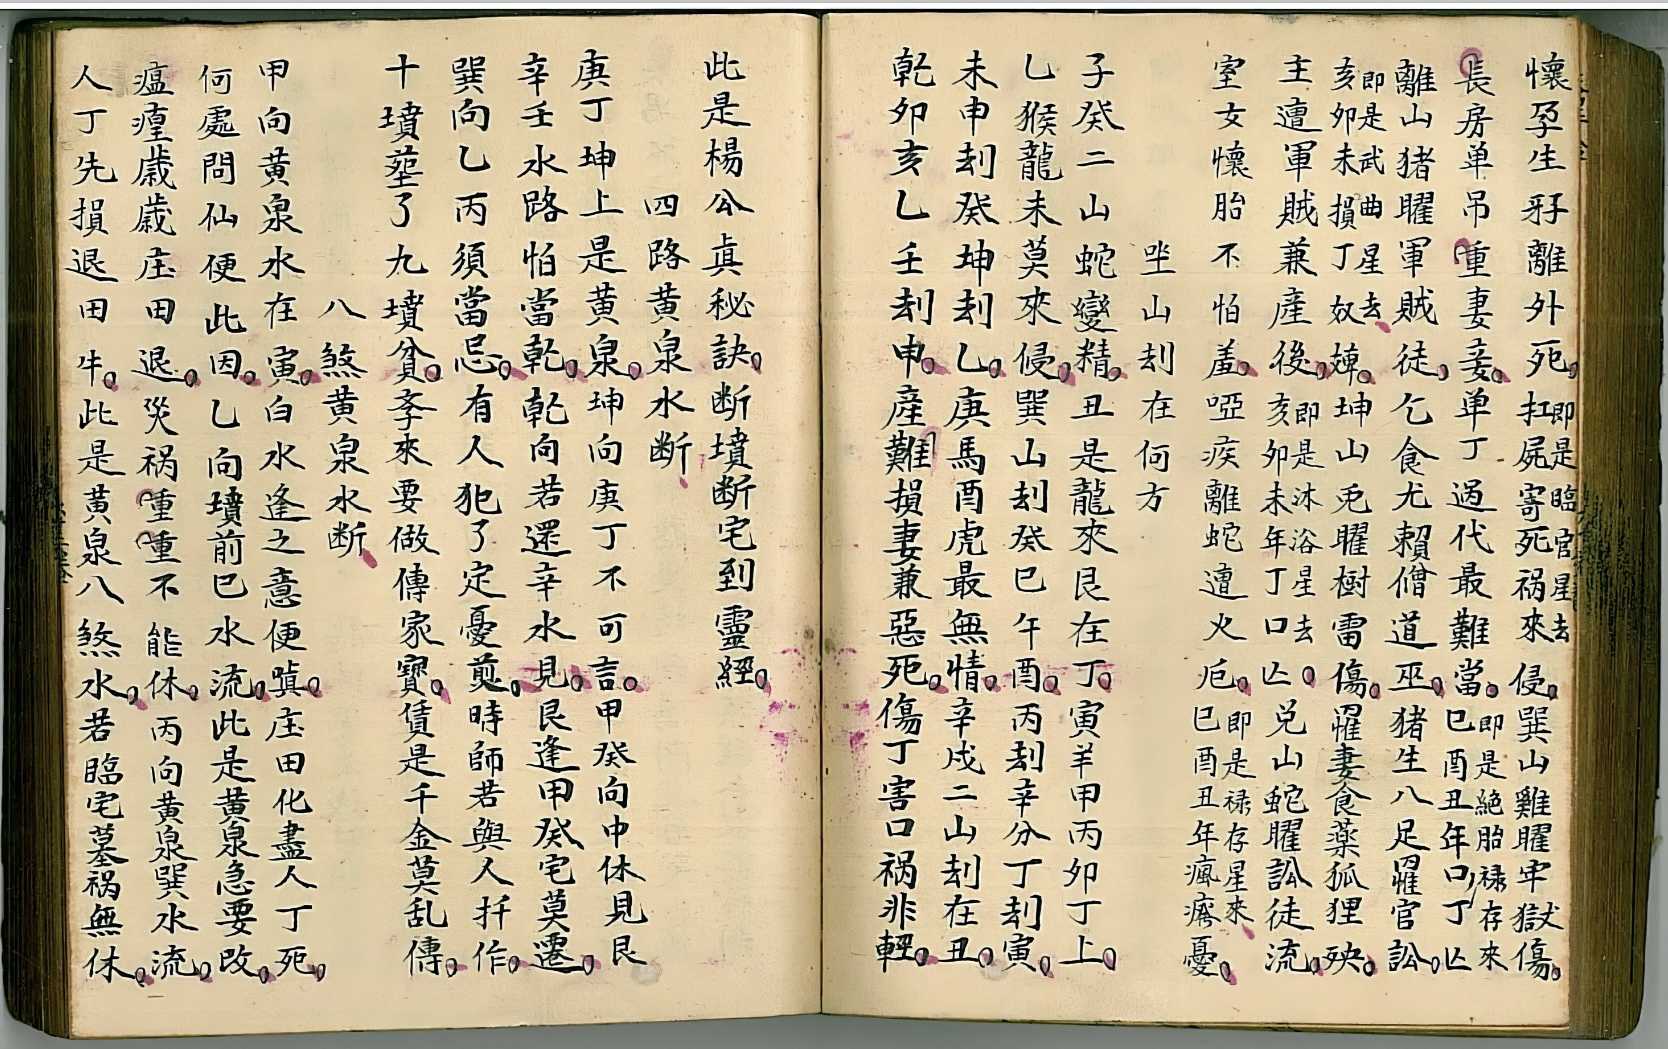 懷孕生牙離外死扛屍寄死禍來侵巽山雞曜牢獄傷
即是臨官星去
長房单吊重妻妾单丁過代最難當巳酉丑年口丁亾
即是絶胎禄存來
離山猪曜軍賊徒乞食尤賴僧道巫猪生八足罹官訟
即是武曲星去
亥卯未損丁奴婢坤山兎曜樹雷傷罹妻食薬狐狸殃
主遭軍賊兼産後亥卯未年丁口亾兑山蛇曜訟徒流
即是沐浴星去
室女懷胎不怕羞啞疾離蛇遭火厄巳酉丑年瘋癆憂
即是禄存星來
坐山刦在何方
子癸二山蛇變精丑是龍來艮在丁寅羊甲丙卯丁上
乚猴龍未莫來侵巽山刦癸巳午酉丙刦辛分丁刦寅
未申刦癸坤刦乚庚馬酉虎最無情辛戍二山刦在丑
乾卯亥乚壬刦申産難損妻兼惡死傷丁害口禍非輕
此是楊公真秘訣断墳断宅到靈經
四路黄泉水断
庚丁坤上是黄泉坤向庚丁不可言甲癸向中休見艮
辛壬水路怕當乾乾向若還辛水見艮逢甲癸宅莫遷
巽向乚丙須當忌有人犯了定憂煎時師若與人扦作
十墳塟了九墳貧孝來要做傳家寳賃是千金莫乱傳
八煞黄泉水断
甲向黄泉水在寅白水逢之意便嗔庄田化盡人丁死
何處問仙便此因乚向墳前巳水流此是黄泉急要改
瘟㾮歳歳庄田退災禍重重不能休丙向黄泉巽水流
人丁先損退田牛此是黄泉八煞水若臨宅墓禍無休